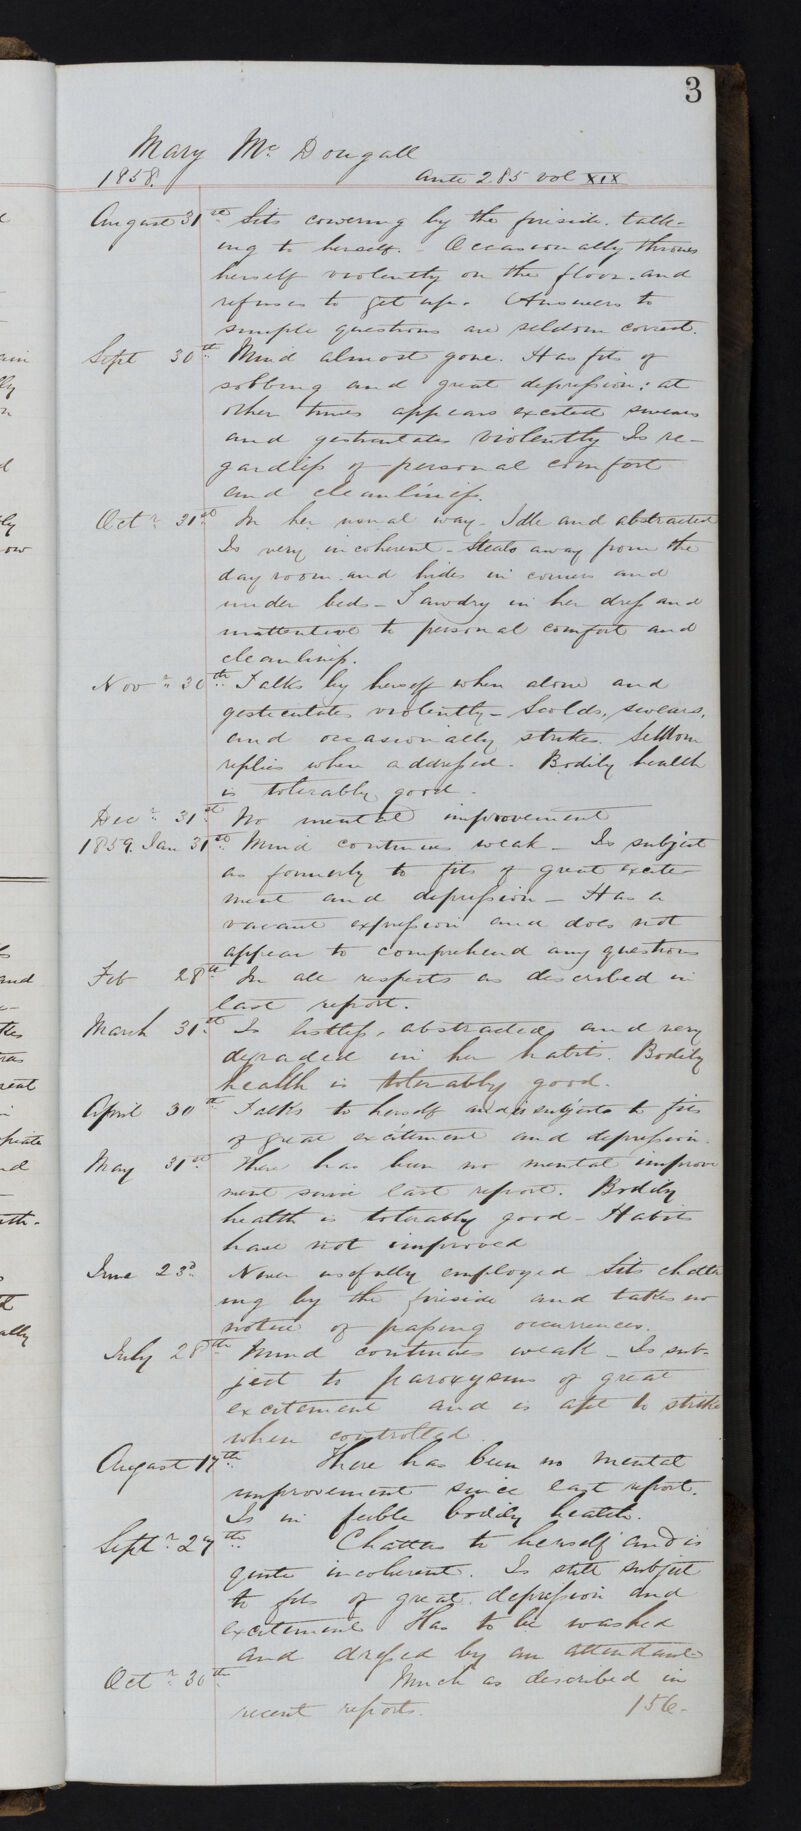 3
Mary Mc Dougall
1858. Ante 285 vol XIX
August 31st Sits cowering by the fireside. talk-
ing to herself. - Occasionally throws
herself violently on the floor. and
refuses to get up. Answers to
simple questions are seldom correct.
Sept 30th Mind almost gone. Has fits of
sobbing and great depression: at
other times appears excited swears
and gesticulates violently Is re-
gardless of personal comfort
and cleanliness.
Octr 31st In her usual way - Idle and abstracted
Is very incoherent - Steals away from the
day room and hides in corners and
under beds - Tawdry in her dress and
inattentive to personal comfort and
cleanliness.
Novr 30th Talks by herself when alone and
gesticulates violently - Scolds, swears,
and occasionally strikes. Seldom
replies when addressed. Bodily health
is tolerably good.
Decr 31st No mental improvement
1859. Jan 31st Mind continues weak - Is subject
as formerly to fits of great excite
ment and depression - Has a
vacant expression and does not
appear to comprehend any questions
Feb 28th In all respects as described in
last report.
March 31st Is listless, abstracted, and very
degraded in her habits. Bodily
health is tolerably good.
April 30th Talks to herself and is subject to fits
of great excitement and depression.
May 31st There has been no mental improve
ment since last report. Bodily
health is tolerably good - Habits
have not improved
June 23d Never usefully employed Sits chatter
ing by the fireside and takes no
notice of passing occurrences.
July 28th Mind continues weak - Is sub-
ject to paroxysms of great
excitement and is apt to strike
when controlled.
August 17th There has been no mental
improvement since last report.
Is in feeble bodily health.
Septr 27th Chatters to herself and is
quite incoherent. Is still subject
to fits of great depression and
excitement Has to be washed
and dressed by an attendant
Octr 30th Much as described in
recent reports. 156.